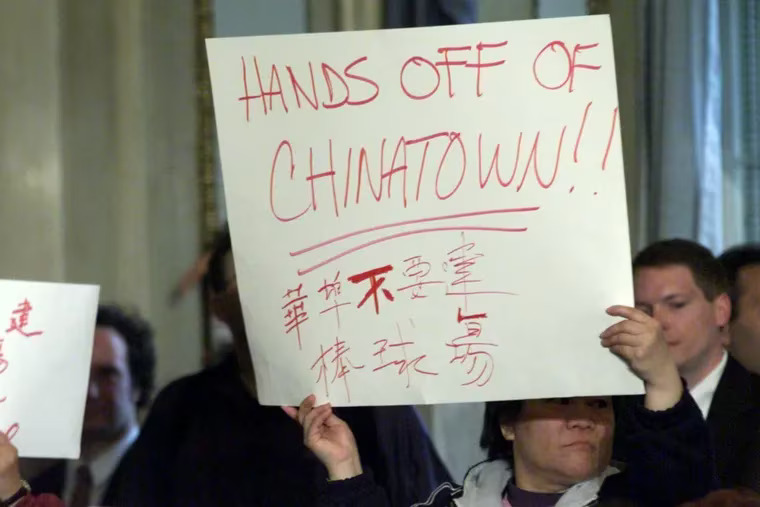 HANDS OFF OF
CHINATOWN!!
華埠不要
棒球場
建